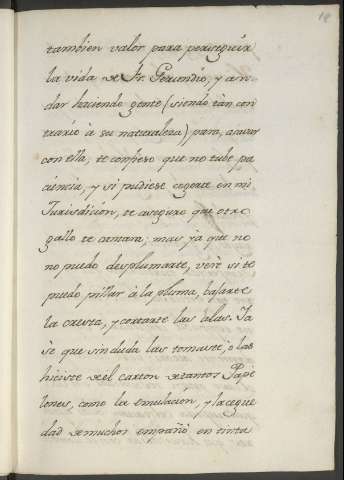 18
tambien valor para perseguir
la vida de Fr. Gerundio, y an-
dar haciendo gente (siendo tan con
trario à su naturaleza) para acavar
con ella, te confieso que no tube pa
ciencia, y si pudiese cogerte en mi
Jurisdicion, te aseguro que otro
gallo te cantara; mas ya que no
no puedo desplumarte, verè si te
puedo pillar à la pluma, bajarte
la cresta, y cortarte las alas. Ya
sè que sin duda las tomaste, ò las
hiciste del carton de tantos Pape
lones, como la emulacion, y la cegue
dad de muchos empañò en tinta